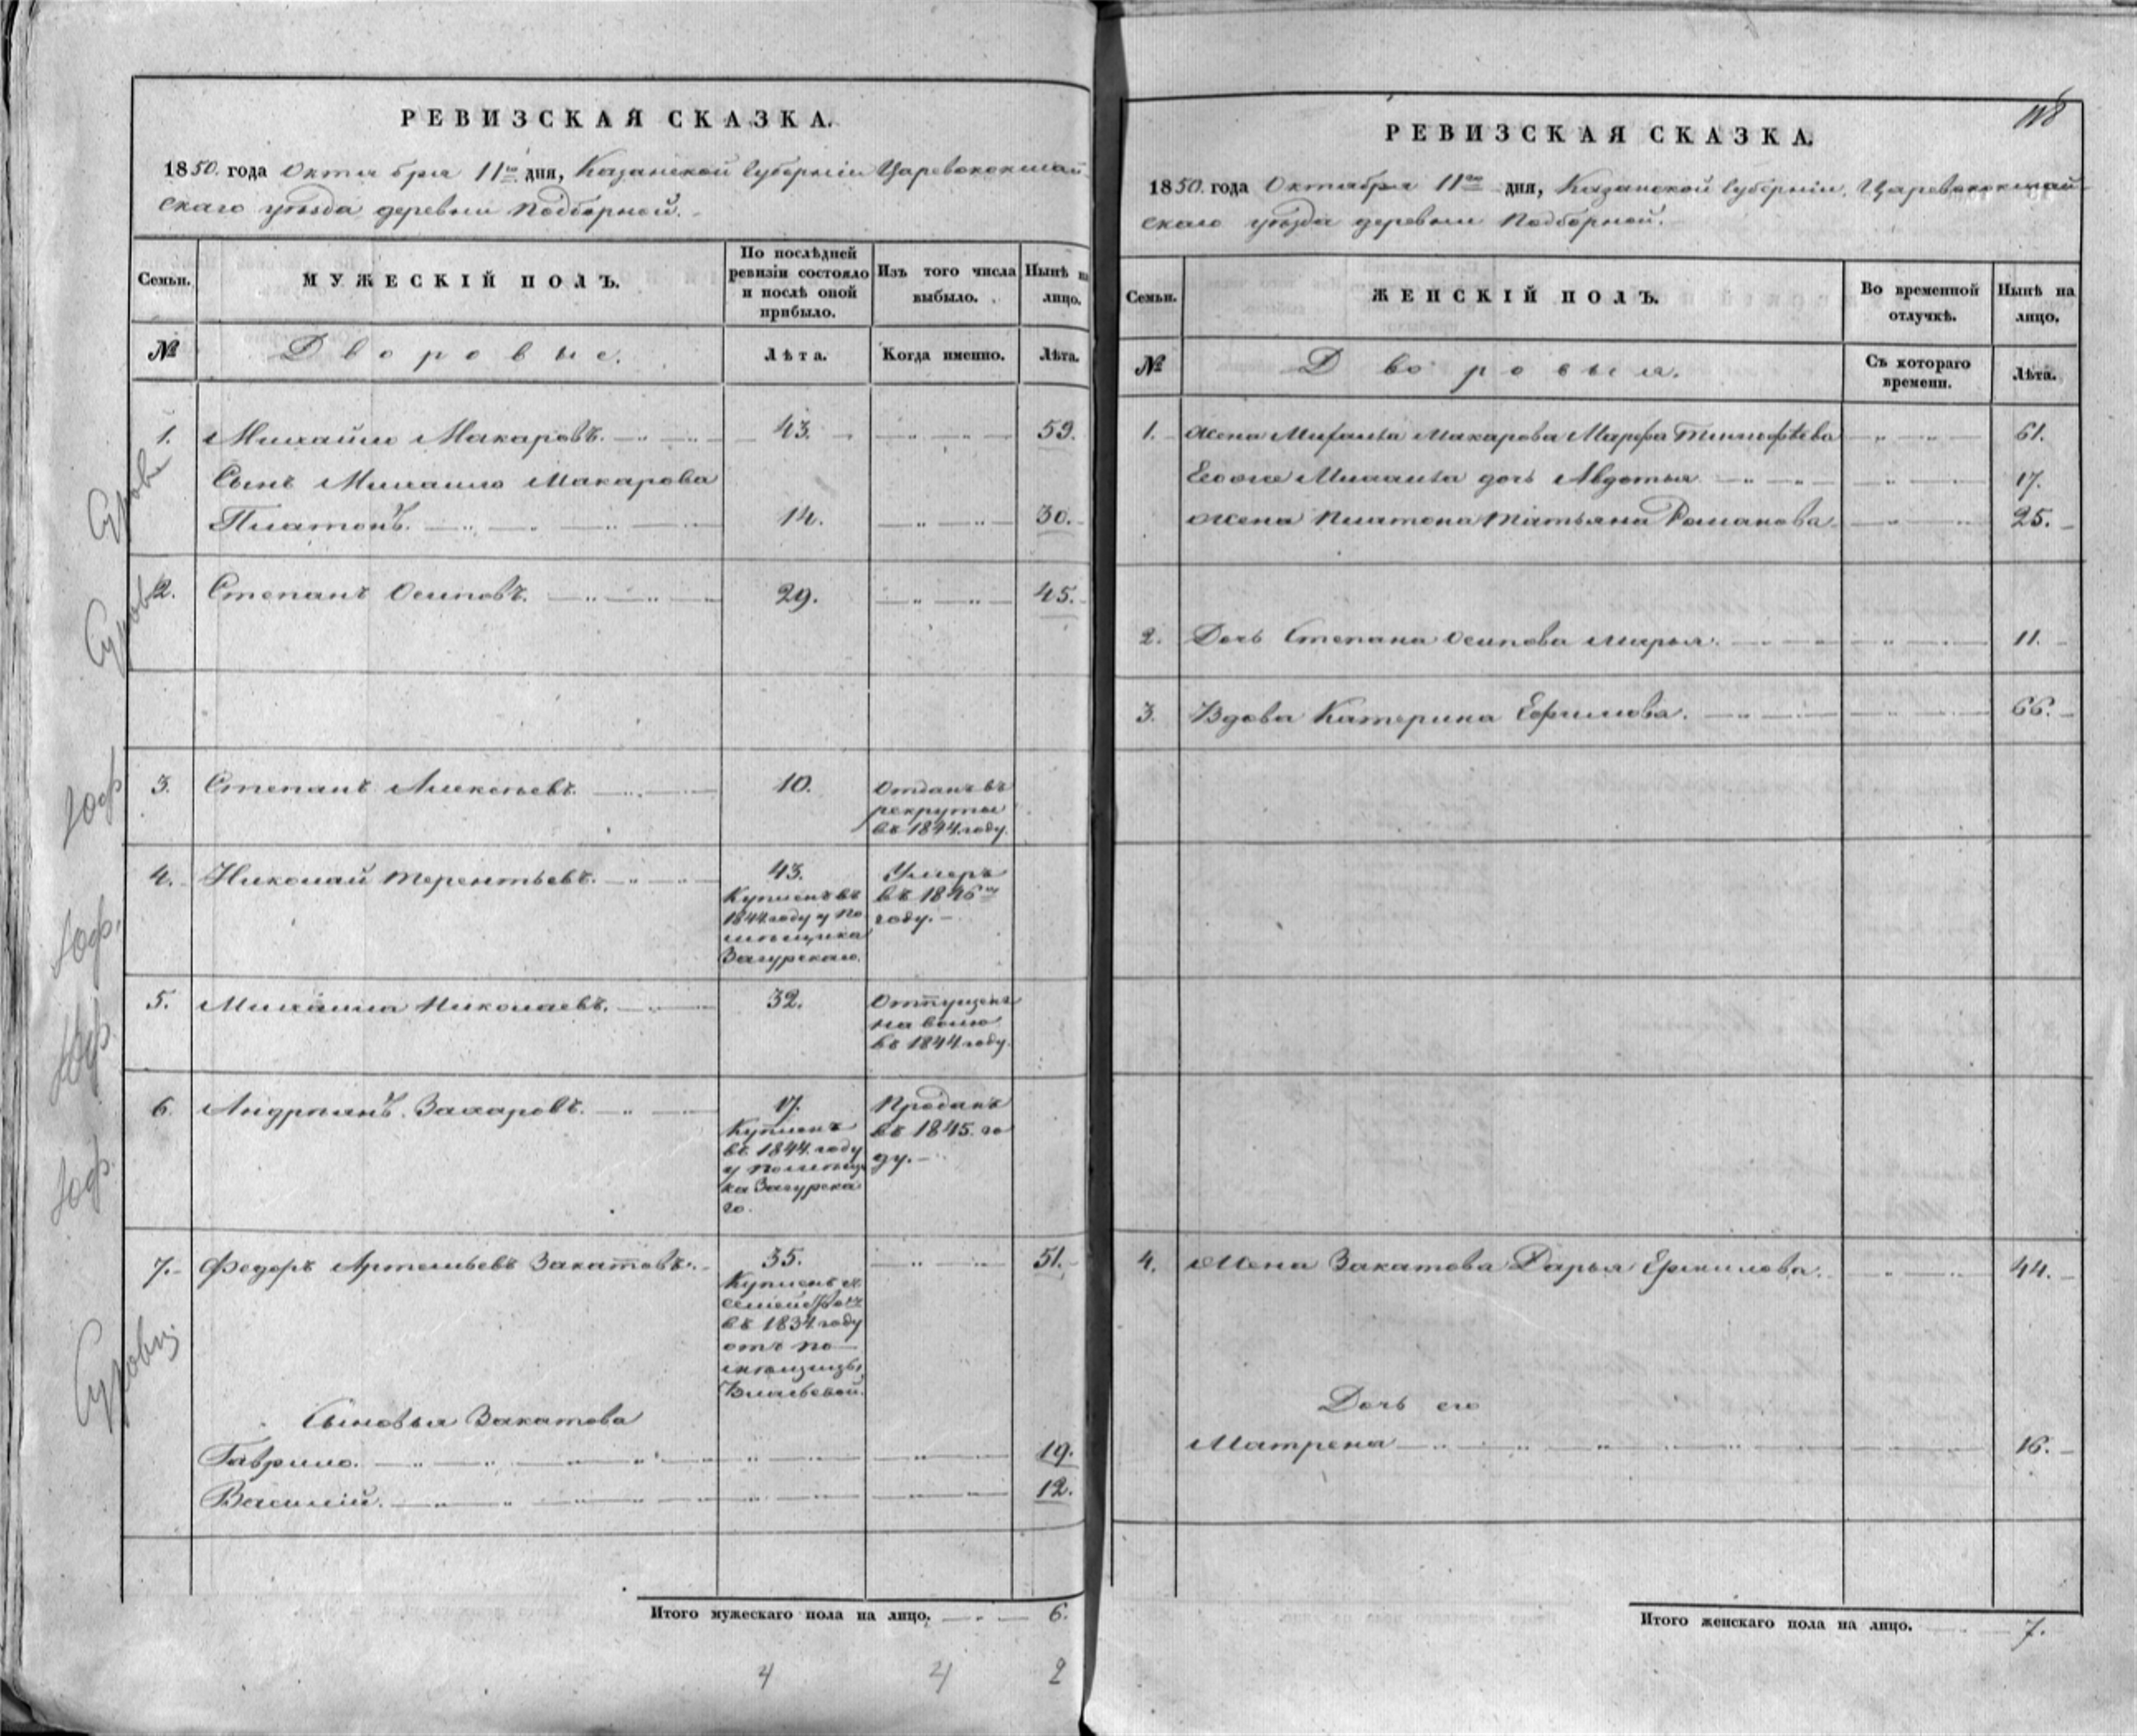 РЕВИЗСКАЯ СКАЗКА.
1850. года Октября 11го дня, Казанской Губерніи Царевококшай
скаго уѣзда деревни Подборной.
Семьи.
МУЖЕСКІЙ ПОЛЪ.
По послѣдней
ревизіи состояло
и послѣ оной
прибыло.
Изъ того числа
выбыло.
Нынѣ на
лицо.
№
Дворовые.
Лѣта.
Когда именно.
Лѣта.
1. Михайло Макаровъ. 43. 59.
Сынъ Михайло Макарова
Платонъ. 14. 30.
2. Степанъ Осиповъ. 29. 45.
3. Степанъ Алексѣевъ. 10.
Отданъ въ
рекруты
въ 1844. году.
4. Николай Терентьевъ. 43.
Купленъ въ
1844. году у по
мѣщика
Загурскаго.
Умеръ
въ 1846м
году.
5. Михайла Николаевъ. 32.
Отпущенъ
на волю
въ 1844 году.
6. Андріянъ Захаровъ. 17.
Купленъ
въ 1844. году
у помѣщи
ка Загурска
го.
Проданъ
въ 1845. го
ду.
7. Федоръ Артемьевъ Закатовъ. 35. 51.
Купленъ съ
въ 1834. году
отъ по
мѣщицы
Сыновья Закатова
Гаврило. 19.
Василій. 12.
Итого мужескаго пола на лицо. 6.
4 4 2
118
РЕВИЗСКАЯ СКАЗКА.
1850. года Октября 11го дня, Казанской Губерніи, Царевококшай
скаго уѣзда деревни Подборной.
Семьи.
ЖЕНСКІЙ ПОЛЪ.
Во временной
отлучкѣ.
Нынѣ на
лицо.
№
Дворовыя.
Съ котораго
времени.
Лѣта.
1. Жена Михайла Макарова Марфа Тимофѣева 61.
Егоже Михайла дочь Авдотья 17.
Жена Платона Татьяна Романова 25.
2. Дочь Степана Осипова Марья. 11.
3. Вдова Катерина Ефимова. 66.
4. Жена Закатова Дарья Ермилова. 44.
Дочь его
Матрена 16.
Итого женскаго пола на лицо. 7.